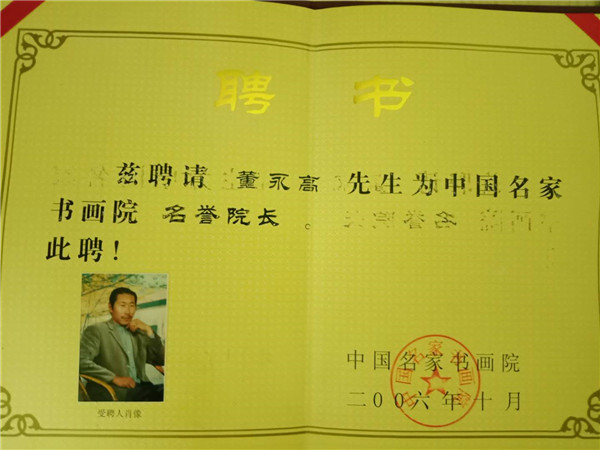 聘 书
兹聘请 董永高 先生为中国名家
书画院 名誉院长 。
此聘！
受聘人肖像
中国名家书画院
二00六年十月
中国名家书画院